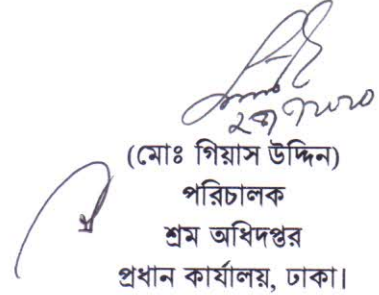 (মোঃ গিয়াস উদ্দিন)
পরিচালক
শ্রম অধিদপ্তর
প্রধান কার্যালয়, ঢাকা।